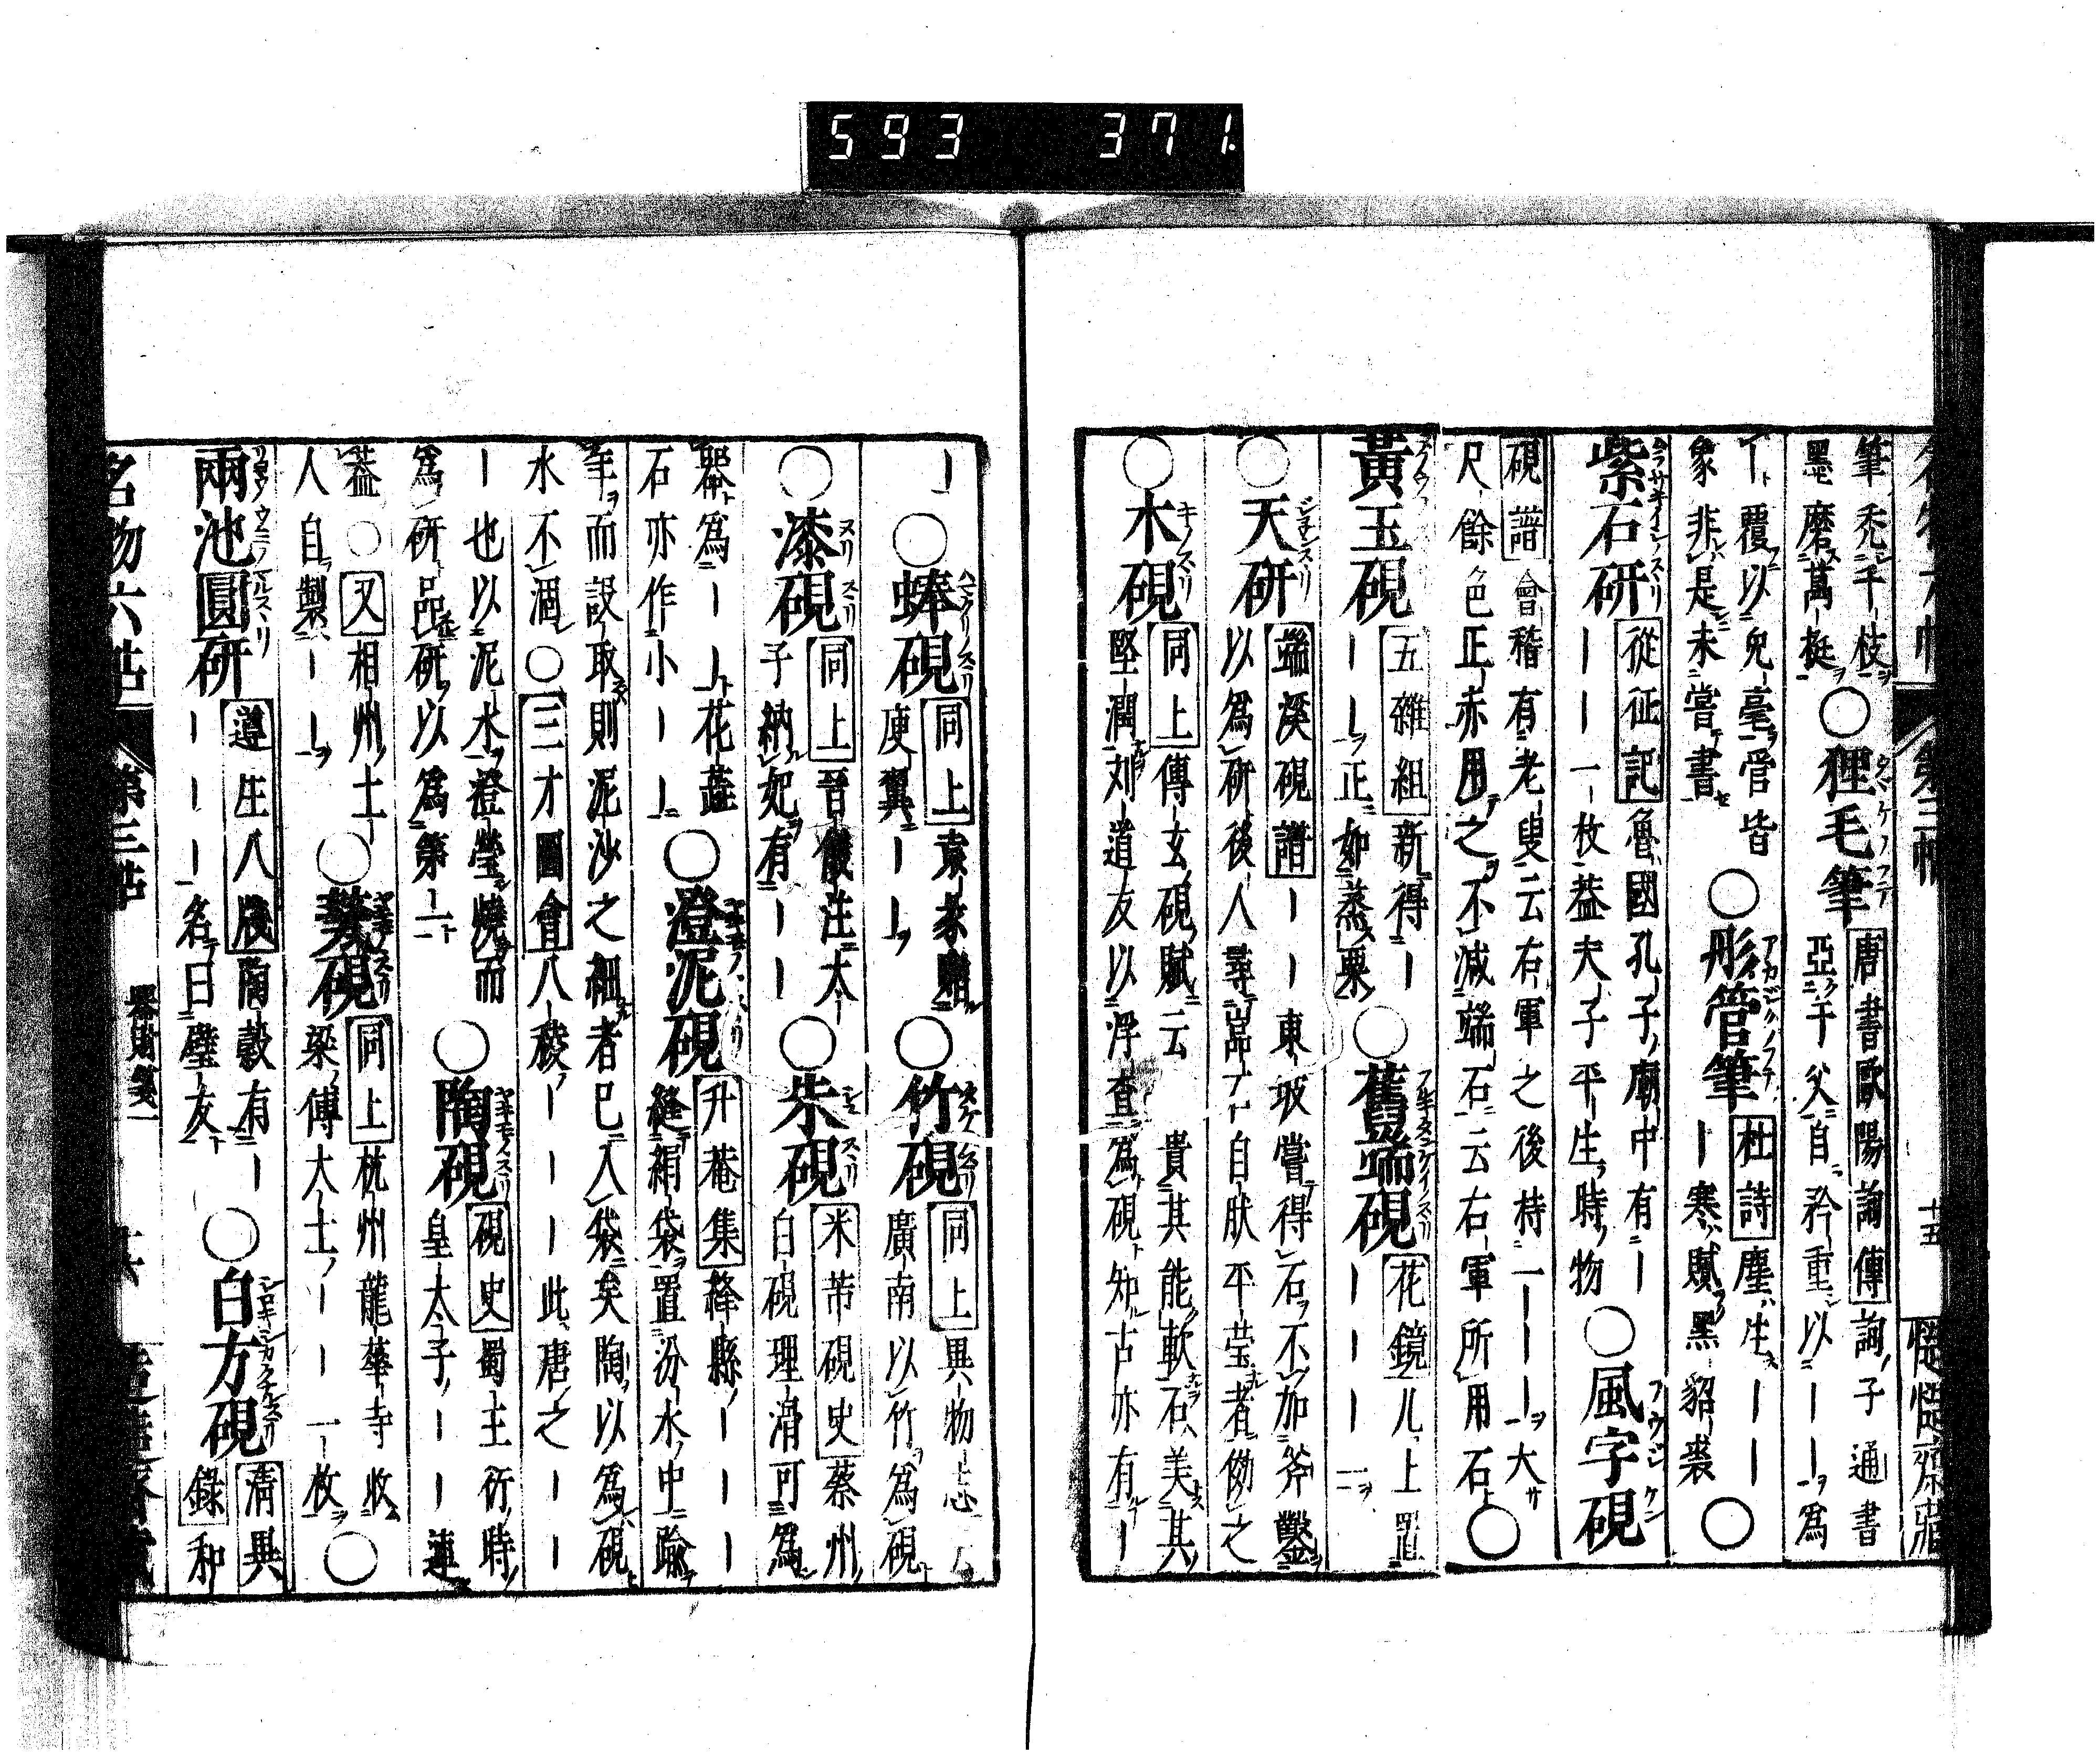 593 371.
筆禿千枝
墨磨萬梃○狸毛筆 唐書歐陽詢傳 詢子通書
亞于父自矜重以｜｜爲
｜覆以兎毫管皆
象非是未嘗書○彤管筆 杜詩 塵生｜｜
｜寒賦黑貂裘○
紫石研 從征記 魯國孔子廟中有｜
｜｜一枚葢夫子平生時物○風字硯
硯譜 會稽有老叟云右軍之後持一｜｜｜大
尺餘色正赤用之不減端石云右軍所用石○
黃玉硯 五雜組 新得｜
｜｜正如蒸栗○舊端硯 花鏡 几上置
｜｜｜一
○天研 端溪硯譜 ｜｜東坡嘗得石不加斧鑿
以爲研後人尋嵓石自然平瑩者倣之
○木硯 同上 傅玄硯賦云 貴其能軟石美其
堅潤刘道友以浮査爲硯知古亦有｜
｜○蚌硯 同上 袁彖贈
庾翼｜｜○竹硯 同上 異物志云
廣南以竹爲硯
○漆硯 同上 晉儀注太
子納妃有｜｜○朱硯 米芾硯史 蔡州
白硯理滑可爲
器爲｜｜花蘂
石亦作小｜｜○澄泥硯 升菴集 絳縣｜｜
縫絹袋置汾水中踰
年而設取則泥沙之細者已入袋矣陶以爲硯
水不涸○三才圖會 八稜｜｜｜此唐之｜
｜也以泥水澄瑩燒而
爲研品研以爲第一○陶硯 硯史 蜀主衍時
皇太子｜｜連
葢○又 相州土
人自製｜｜○甆硯 同上 杭州龍華寺收
梁傅大士｜｜一枚○
兩池圓研 遵生八牋 陶穀有｜
｜｜｜名曰璧友○白方硯 淸異
錄 和
名物六帖 第三帖 器財箋一